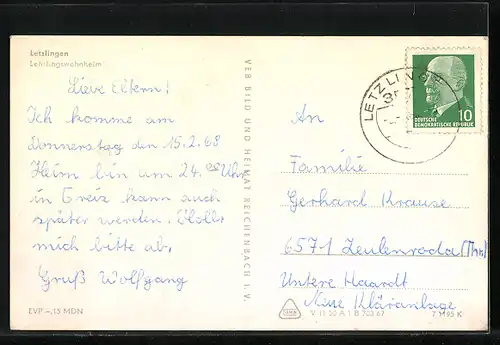 Letzlingen
Lehrlingswohnheim
Liebe Eltern!
Ich komme am
Donnerstag den 15.2.68
Heim bin um 24.00 Uhr
in Greiz kann auch
später werden. Holt
mich bitte ab.
Gruß Wolfgang
EVP –,15 MDN
VEB BILD UND HEIMAT REICHENBACH I. V.
LETZLINGEN
10
DEUTSCHE
DEMOKRATISCHE REPUBLIK
An
Familie
Gerhard Krause
6571 Zeulenroda (Thür)
Untere Haardt
Neue Kläranlage
V 11 50 A 1 B 703/67
7 1495 K